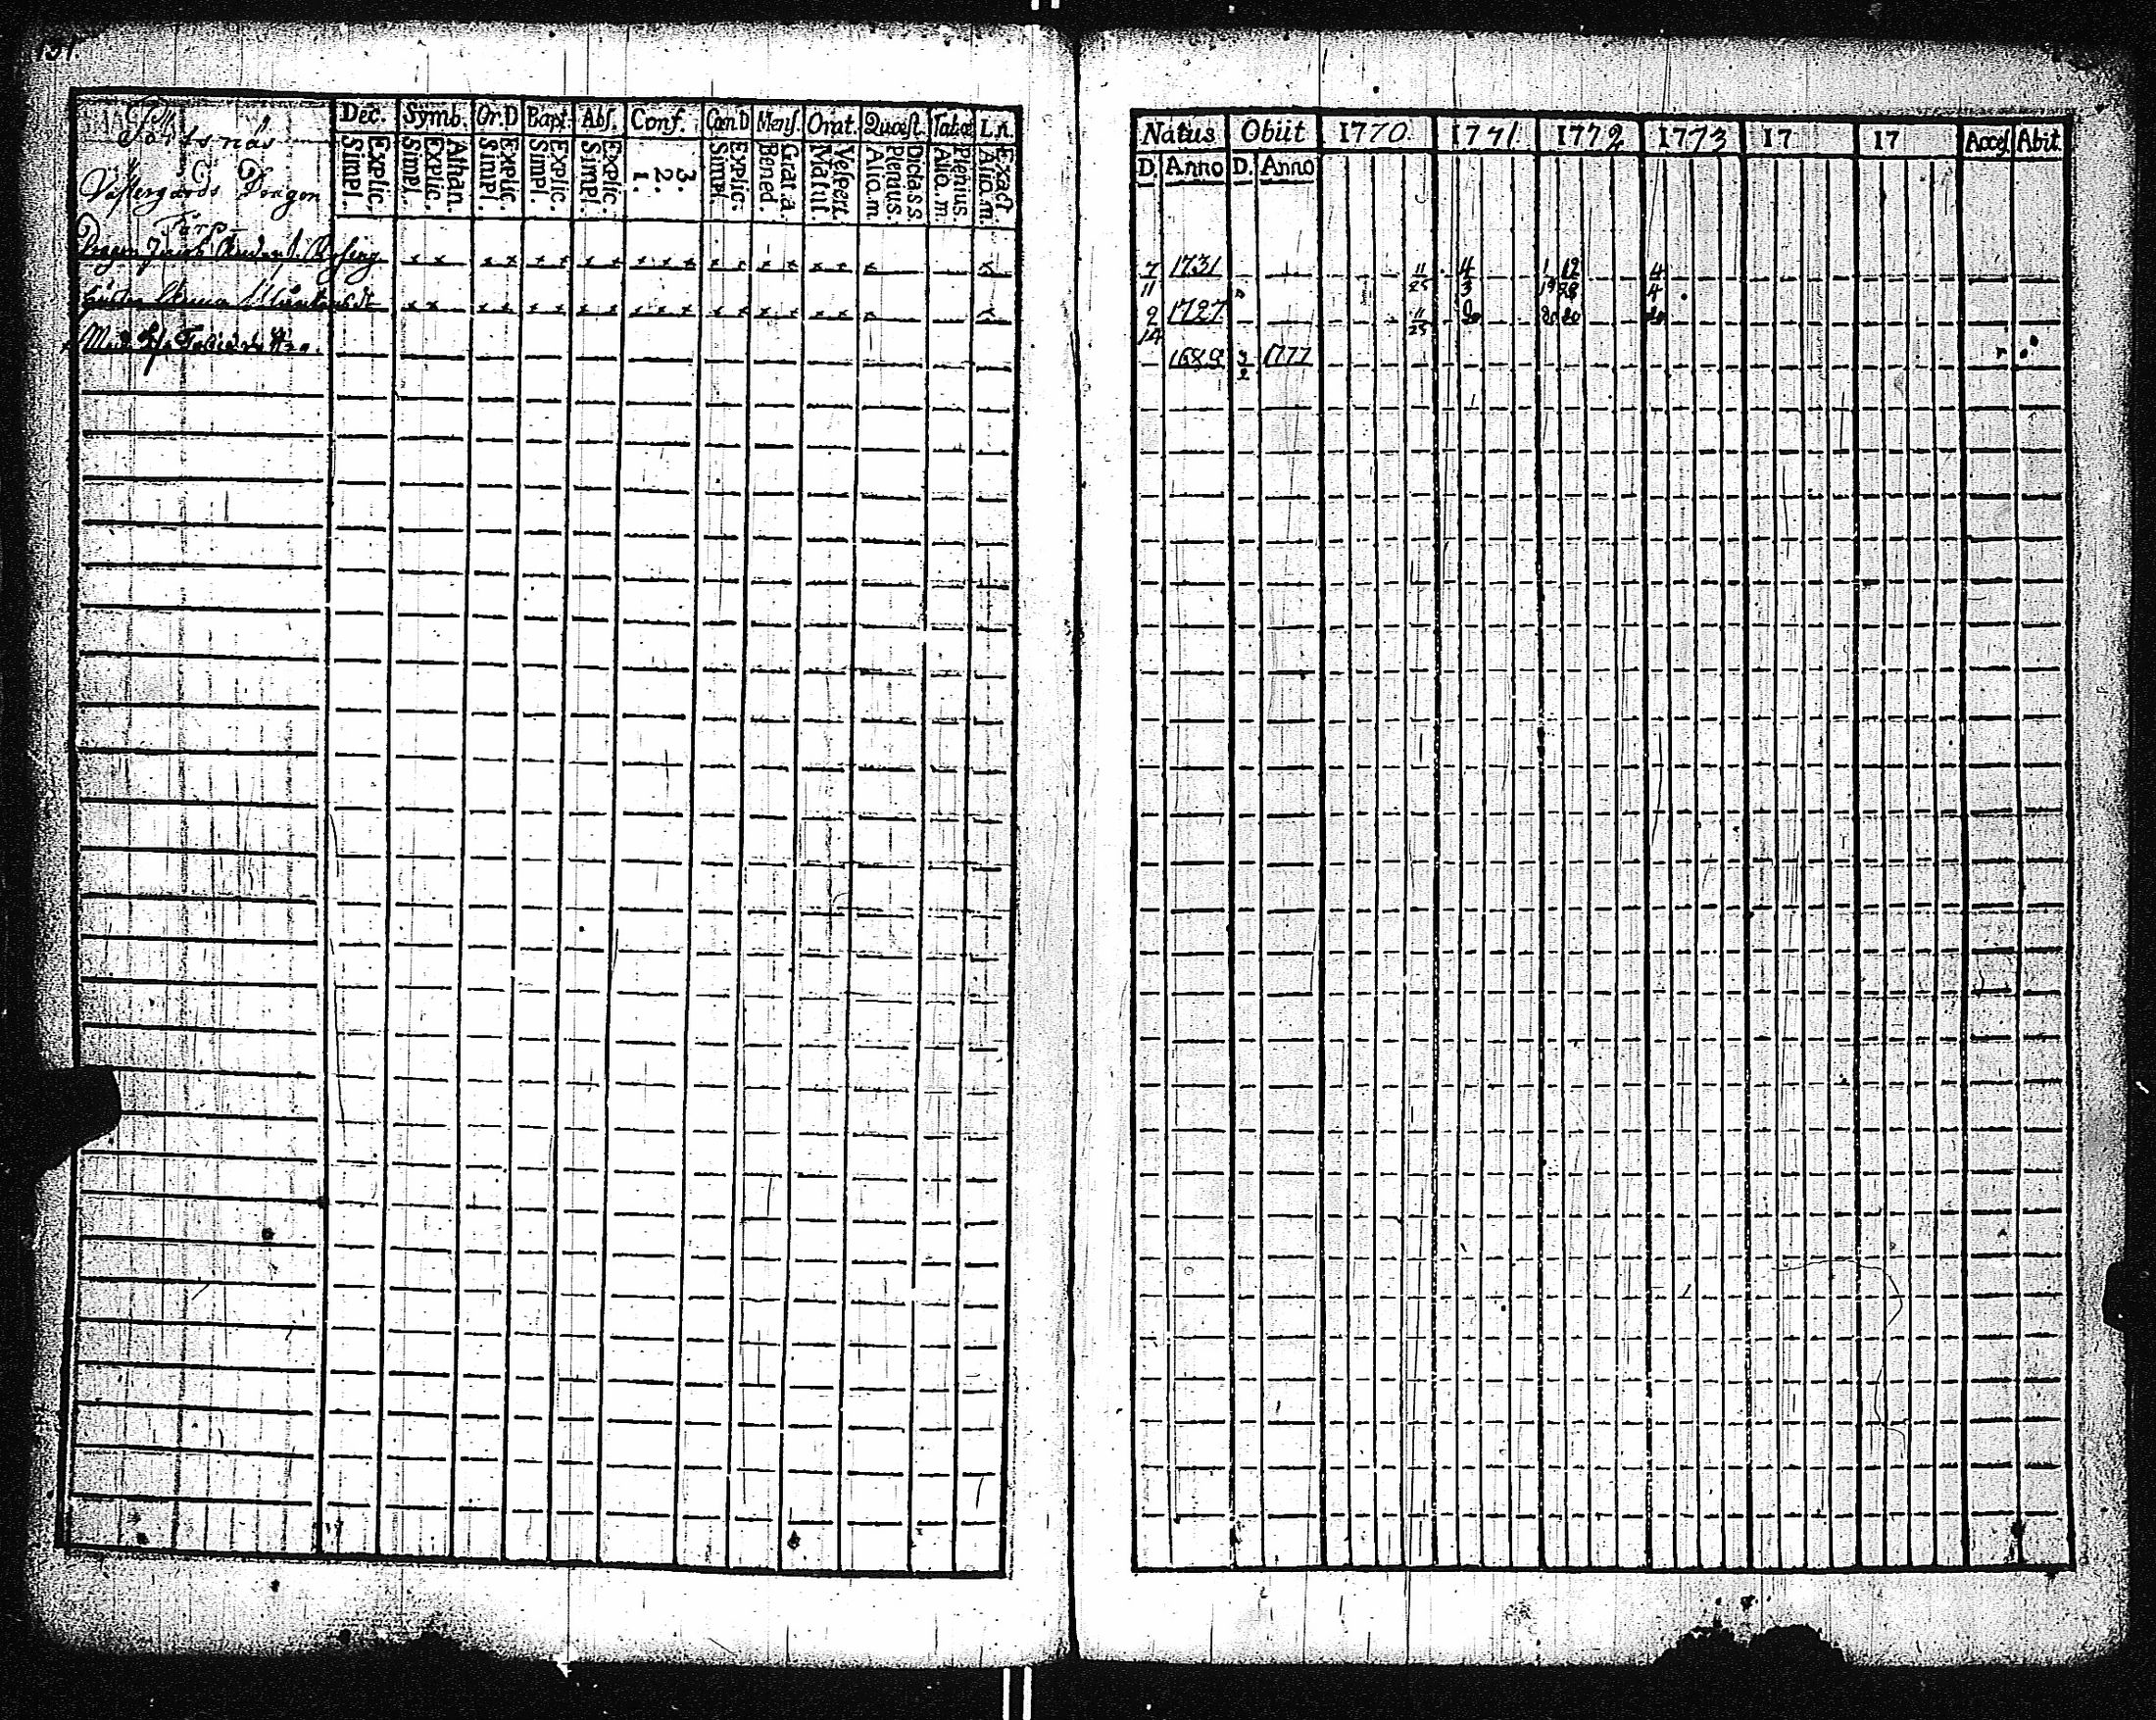 151.
Dec. Symb. Or.D Bapt. Abs. Conf. Can.D Mens. Orat. Quæst. Tabæ L.n.
Västergårds Dragon
Torp
Explic. Simpl. Athan. Explic. Simpl. Explic. Simpl. Explic. Simpl. Explic. Simpl. 3. 2. 1. Explic. Simpl. Grat. a. Bened. Vespert. Matut. Dicta s.s. Plenius. Aliq. m. Plenius. Aliq. m. Exact. Aliq. m.
Dragon Jacob
x x x x x x x x x x x x x x x x x x x
Hustru Anna
x x x x x x x x x x x x x x x x x x x
Natus Obiit 1770. 1771. 1772 1773 17 17 Acces. Abit.
D. Anno D. Anno
7 11 1731 11 25 4 3 1 19 12 28 4 4
2 14 1727 11 25 20 20 20 20
1689 3 2 1777